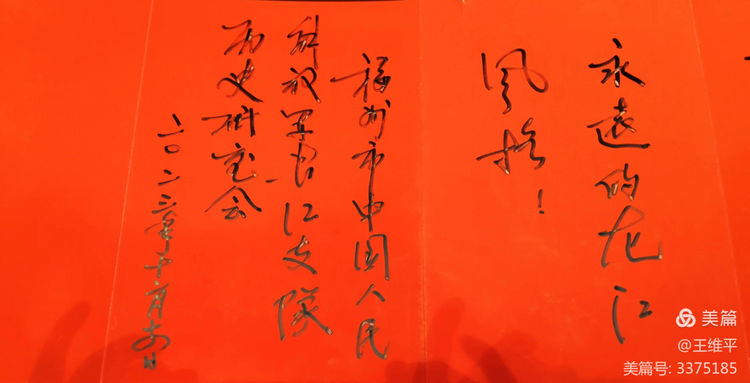 永远的龙江
风格！
福州市中国人民
解放军长江支隊
历史研究会
二〇二三年
美篇
@王维平
美篇号: 3375185